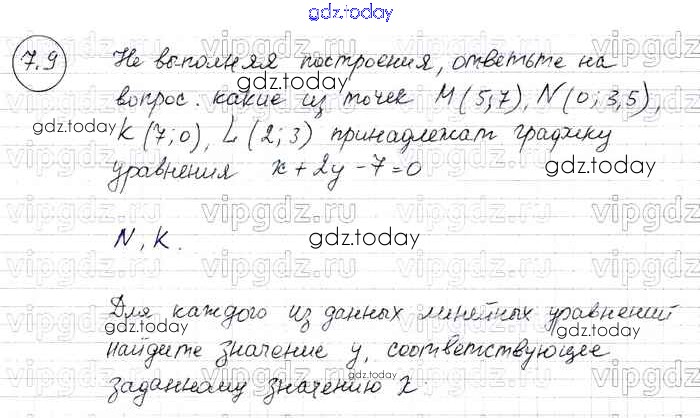 gdz.today
7.9 Не выполняя построения, ответьте на
gdz.today
вопрос. какие из точек M(5;7), N(0;3,5),
gdz.today
K(7;0), L(2;3) принадлежат графику
gdz.today
уравнения x+2y-7=0
vipgdz.ru
N, K.
gdz.today
Для каждого из данных линейных уравнений
gdz.today
найдите значение y, соответствующее
заданному значению x.